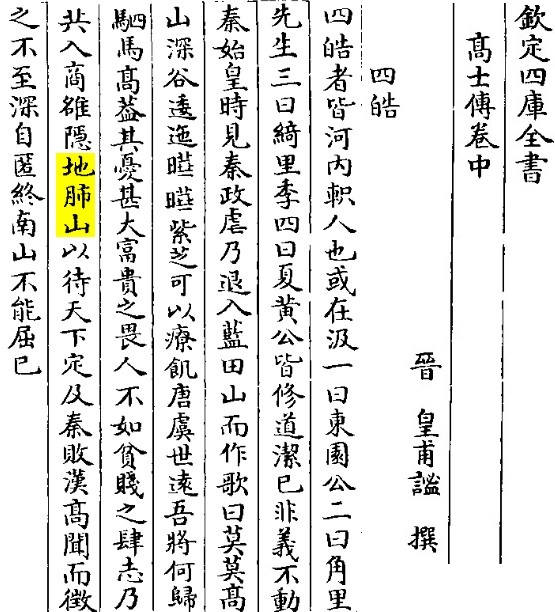 欽定四庫全書
髙士傳卷中
晉 皇甫謐 撰
四皓
四皓者皆河内軹人也或在汲一曰東園公二曰角里
先生三曰綺里季四曰夏黃公皆修道潔已非義不動
秦始皇時見秦政虐乃退入藍田山而作歌曰莫莫髙
山深谷逶迤曄曄紫芝可以療飢唐虞世逺吾將何歸
駟馬髙葢其憂甚大富貴之畏人不如貧賤之肆志乃
共入商雒隱地肺山以待天下定及秦敗漢髙聞而徵
之不至深自匿終南山不能屈已